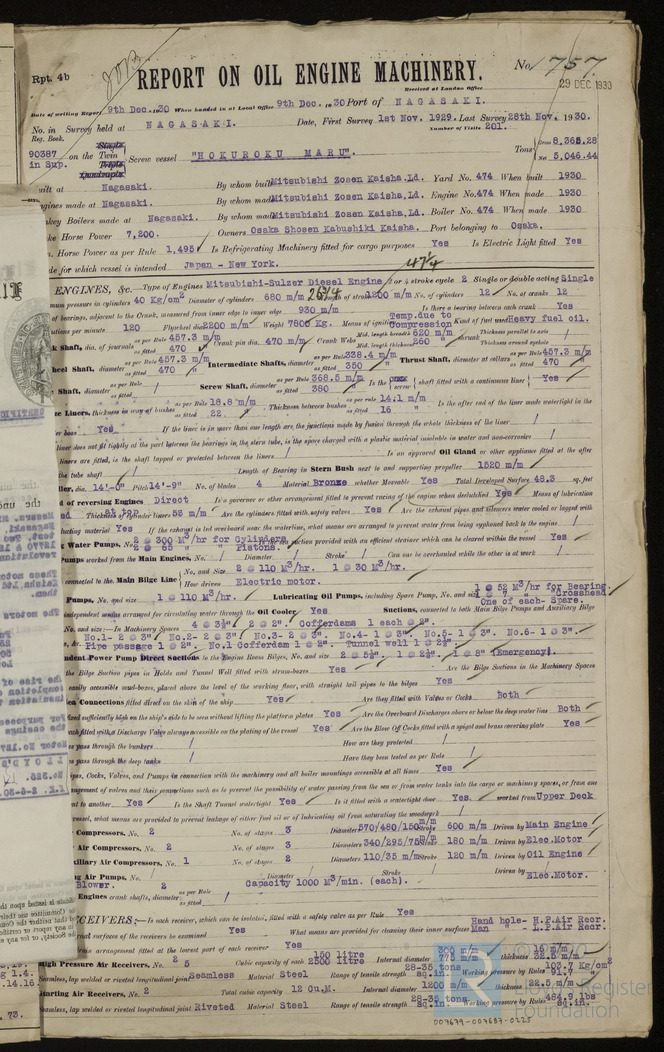 Rpt. 4b
REPORT ON OIL ENGINE MACHINERY.
No. 757
29 DEC 1930
Received at London Office
Date of writing Report 9th Dec. 1930 When handed in at Local Office 9th Dec. 1930 Port of NAGASAKI.
No. in Survey held at NAGASAKI. Date, First Survey 1st Nov. 1929. Last Survey 28th Nov. 1930.
Reg. Book. Number of Visits 201.
90387 in Sup. on the Single Twin Triple Quadruple Screw vessel "HOKUROKU MARU". Tons Gross 8,365.28 Net 5,046.44
Built at Nagasaki. By whom built Mitsubishi Zosen Kaisha, Ld. Yard No. 474 When built 1930
Engines made at Nagasaki. By whom made Mitsubishi Zosen Kaisha, Ld. Engine No. 474 When made 1930
Donkey Boilers made at Nagasaki. By whom made Mitsubishi Zosen Kaisha, Ld. Boiler No. 474 When made 1930
Horse Power 7,200. Owners Osaka Shosen Kabushiki Kaisha. Port belonging to Osaka.
Horse Power as per Rule 1,495 Is Refrigerating Machinery fitted for cargo purposes Yes Is Electric Light fitted Yes
Trade for which vessel is intended Japan - New York.
ENGINES, &c. Type of Engines Mitsubishi-Sulzer Diesel Engine 2 or 4 stroke cycle 2 Single or double acting Single
Maximum pressure in cylinders 40 Kg/cm² Diameter of cylinders 680 m/m Length of stroke 1200 m/m No. of cylinders 12 No. of cranks 12
of bearings, adjacent to the Crank, measured from inner edge to inner edge 930 m/m Is there a bearing between each crank Yes
Revolutions per minute 120 Flywheel dia. 2200 m/m Weight 7806 Kg. Means of ignition Temp. due to Compression Kind of fuel used Heavy fuel oil.
Crank Shaft, dia. of journals as per Rule 457.3 m/m as fitted 470 Crank pin dia. 470 m/m Crank Webs Mid. length breadth 620 m/m Mid. length thickness 260 Thickness parallel to axis Thickness around eyehole
Wheel Shaft, diameter as per Rule 457.3 m/m as fitted 470 Intermediate Shafts, diameter as per Rule 338.4 m/m as fitted 350 Thrust Shaft, diameter at collars as per Rule 457.3 m/m as fitted 470
Shaft, diameter as per Rule as fitted Screw Shaft, diameter as per Rule 368.5 m/m as fitted 380 Is the screw shaft fitted with a continuous liner Yes
Liners, thickness in way of bushes as per Rule 18.8 m/m as fitted 22 Thickness between bushes as per Rule 14.1 m/m as fitted 16 Is the after end of the liner made watertight in the
propeller boss Yes If the liner is in more than one length are the junctions made by fusion through the whole thickness of the liner
liner does not fit tightly at the part between the bearings in the stern tube, is the space charged with a plastic material insoluble in water and non-corrosive
liners are fitted, is the shaft lapped or protected between the liners Is an approved Oil Gland or other appliance fitted at the after
the tube shaft Length of Bearing in Stern Bush next to and supporting propeller 1520 m/m
Propeller, dia. 14'-0" Pitch 14'-9" No. of blades 4 Material Bronze whether Moveable Yes Total Developed Surface 48.3 sq. feet
of reversing Engines Direct Is a governor or other arrangement fitted to prevent racing of the engine when declutched Yes Means of lubrication
Thickness of cylinder liners at top 53 m/m Are the cylinders fitted with safety valves Yes Are the exhaust pipes and silencers water cooled or lagged with
conducting material Yes If the exhaust is led overboard near the waterline, what means are arranged to prevent water from being syphoned back to the engine
Water Pumps, No. 2 @ 300 M³/hr for Cylinders 2 @ 65 " " Pistons. Is the sea suction provided with an efficient strainer which can be cleared within the vessel Yes
Pumps worked from the Main Engines, No. Diameter Stroke Can one be overhauled while the other is at work
connected to the Main Bilge Line No. and Size 2 @ 110 M³/hr. 1 @ 30 M³/hr. How driven Electric motor.
Pumps, No. and size 1 @ 110 M³/hr. Lubricating Oil Pumps, including Spare Pump, No. and size 1 @ 52 M³/hr for Bearing. 1 @ 7 " Crosshead One of each- Spare.
independent means arranged for circulating water through the Oil Cooler Yes Suctions, connected to both Main Bilge Pumps and Auxiliary Bilge
No. and size:—In Machinery Spaces 4 @ 3½" 2 @ 2". Cofferdams 1 each @ 2".
No.1- 2 @ 3" No.2- 2 @ 3" No.3- 2 @ 3". No.4- 1 @ 3" No.5- 1 @ 3" No.6- 1 @ 3"
Pipe passage 1 @ 2". No.1 Cofferdam 1 @ 2". Tunnel well 1 @ 2½"
Independent Power Pump Direct Suctions to the Engine Room Bilges, No. and size 2 @ 5½". 1 @ 2½". 1 @ 8" (Emergency).
the Bilge Suction pipes in Holds and Tunnel Well fitted with strum-boxes Yes Are the Bilge Suctions in the Machinery Spaces
easily accessible mud-boxes, placed above the level of the working floor, with straight tail pipes to the bilges Yes
Sea Connections fitted direct on the skin of the ship Yes Are they fitted with Valves or Cocks Both
fixed sufficiently high on the ship's side to be seen without lifting the platform plates Yes Are the Overboard Discharges above or below the deep water line Both
each fitted with a Discharge Valve always accessible on the plating of the vessel Yes Are the Blow Off Cocks fitted with a spigot and brass covering plate Yes
pass through the bunkers How are they protected
pass through the deep tanks Have they been tested as per Rule
Pipes, Cocks, Valves, and Pumps in connection with the machinery and all boiler mountings accessible at all times Yes
arrangement of valves and their connections such as to prevent the possibility of water passing from the sea or from water tanks into the cargo or machinery spaces, or from one
compartment to another Yes Is the Shaft Tunnel watertight Yes Is it fitted with a watertight door Yes. worked from Upper Deck
vessel, what means are provided to prevent leakage of either fuel oil or of lubricating oil from saturating the woodwork
Compressors, No. 2 No. of stages 3 Diameters 570/480/150 m/m Stroke 600 m/m Driven by Main Engine
Air Compressors, No. 2 No. of stages 3 Diameters 340/295/75 m/m Stroke 180 m/m Driven by Elec.Motor
Auxiliary Air Compressors, No. 1 No. of stages 2 Diameters 110/35 m/m Stroke 120 m/m Driven by Oil Engine
Air Pumps, No. Diameter Stroke Driven by Elec.Motor.
Blower. 2 Capacity 1000 M³/min. (each).
Engines crank shafts, diameter as per Rule as fitted
RECEIVERS:—Is each receiver, which can be isolated, fitted with a safety valve as per Rule Yes
internal surfaces of the receivers be examined Yes What means are provided for cleaning their inner surfaces Hand hole- H.P.Air Recr. Man " - L.P.Air Recr.
arrangement fitted at the lowest part of each receiver Yes
High Pressure Air Receivers, No. 2 5 Cubic capacity of each 150 litre 2500 litre Internal diameter 300 m/m 775 thickness 16 m/m 32.5 m/m
Seamless, lap welded or riveted longitudinal joint Seamless Material Steel Range of tensile strength 28-35 tons sq.in. Working pressure by Rules 103.7 Kg/cm² 91.7
Starting Air Receivers, No. 2 Total cubic capacity 12 Cu.M. Internal diameter 1200 m/m thickness 22.5 m/m
Seamless, lap welded or riveted longitudinal joint Riveted Material Steel Range of tensile strength 28-30 tons sq.in. Working pressure by Rules 484.9 lbs
Lloyd's Register Foundation
007679-007687-0225